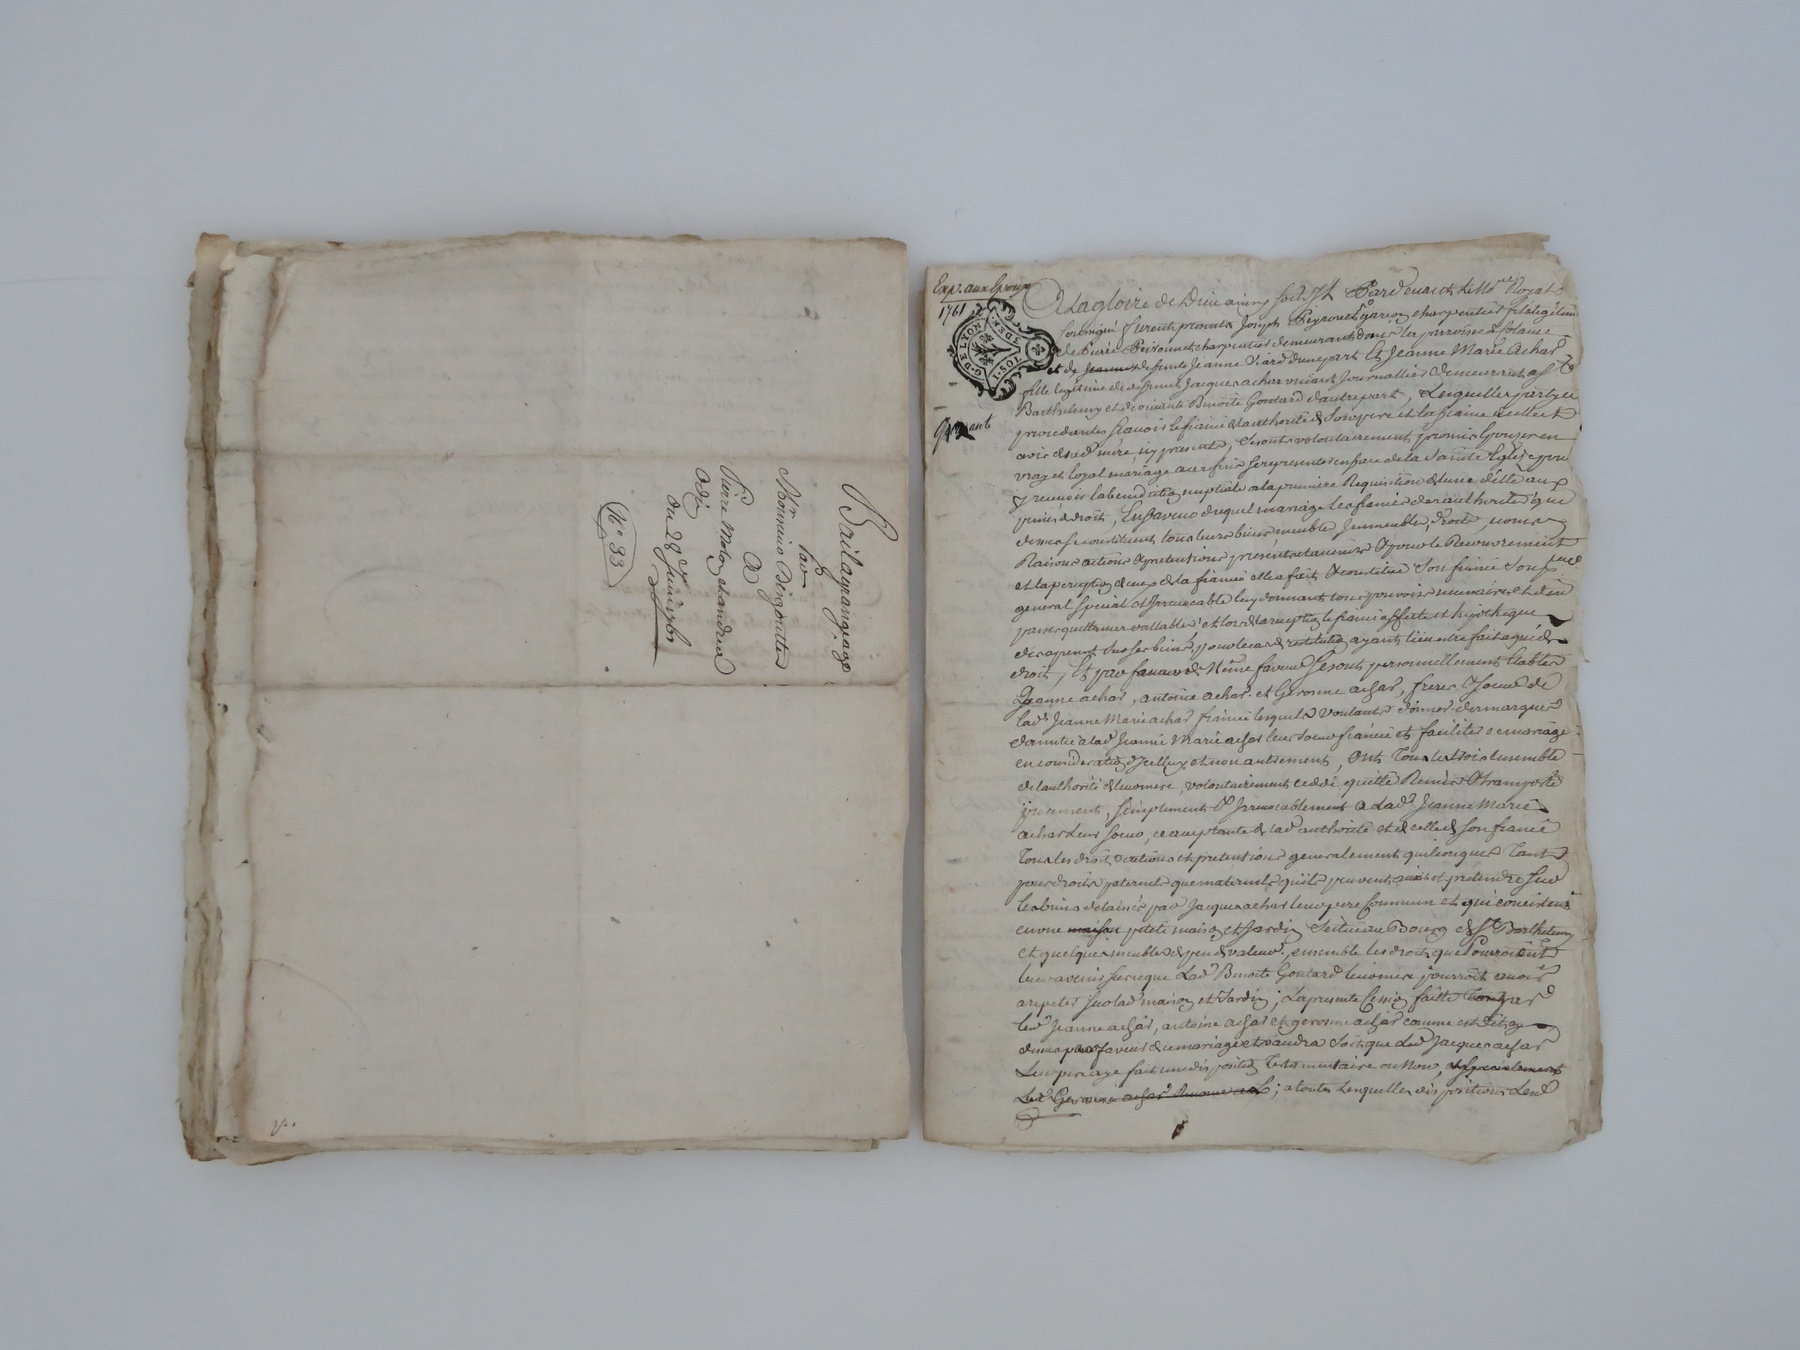 Bail a grangeage
par
Mr Monsieur Desgouttes
A
Pierre Molon et andrea
adj
du 28e Juin 1760
No 33
Exp. aux Epoux
1761
G. DE LYON
3 DEN.
A la gloire de Dieu ainsy soit il Pardevant le No.re Royal
soussigné furent presents Joseph Peyronet garçon charpentier fils legitime
de Pierre Peironnet charpentier demeurant dans la parroisse
et de defunte Jeanne Viard d'une part Et Jeanne Marie Achar
fille legitime de defunt Jacques achar vivant Journallier demeurant a St
Barthelemy et de vivante Benoite Goutard d'autre part, Lesquelles partyes
procedantes scavoir le fiancé de l'authorité de son pere et la fiancée de celle et
avis de sad. mere, icy presents, se sont volontairement promis Epouser en
vray et loyal mariage a ces fins se representer en face de la Sainte Eglise pour
y recevoir la benediction nuptiale a la premiere Requisition de l'une d'elles aux
peines de droit, En faveur duquel mariage les fiancés de mes authorité que
dessus se constituent tous leurs biens meubles Immeubles, droits, noms
Raisons actions et pretentions presents et a venir et pour le Recouvrement
et la perception de ceux de la fiancée elle a fait et constitué son fiancé son proc.
general special et Irrevocable luy donnant tous pouvoirs necessaires et d'en
passer quittances vallables et lors de la reception le fiancé affecte et hipotheque
des a present sur ses biens pour le cas de restitution ayant lieu etre fait a qui de
droit, Et par faveur de Meme faveur se sont personnellement Etablis
Jeanne achar, antoine achar et Gerosme achar, freres et soeur de
lad. Jeanne Marie achar fiancée lesquels voulants donner des marques
d'amitié a lad. Jeanne Marie achar leur soeur fiancée et faciliter ce mariage
en consideration d'Icelluy et non autrement, ont Tous les trois Ensemble
de l'authorité de leur mere, volontairement cedde quitté Remis et transporté
purement, simplement et Irrevocablement a Lad. Jeanne Marie
achar leur soeur, ce acceptante de lad. authorité et de celle de son fiancé
Tous les droits actions et pretentions generalement quelconques Tant
pour droits paternels que maternels qu'ils peuvent avoir et pretendre sur
les biens delaissés par Jacques achar leur pere Commun et qui consistent
en une maison petite maison et Jardin Scitué au Bourg de St Barthelemy
et quelques meubles de peu de valeur, ensemble les droits que Pourroient
leur avenir sur ce que Lad. Benoite Goutard leur mere pourroit avoir
a repeter sur lad. maison et Jardin; La presente Cession faitte par
les Jeanne achar, antoine achar et gerosme achar comme est dit cy
dessus par faveur de ce mariage et vaudra soit que Led. Jacques achar
Leur pere aye fait une disposition Testamentaire ou Non,
Led. Gerosme achar; a toutes Lesquelles dispositions Lesd.